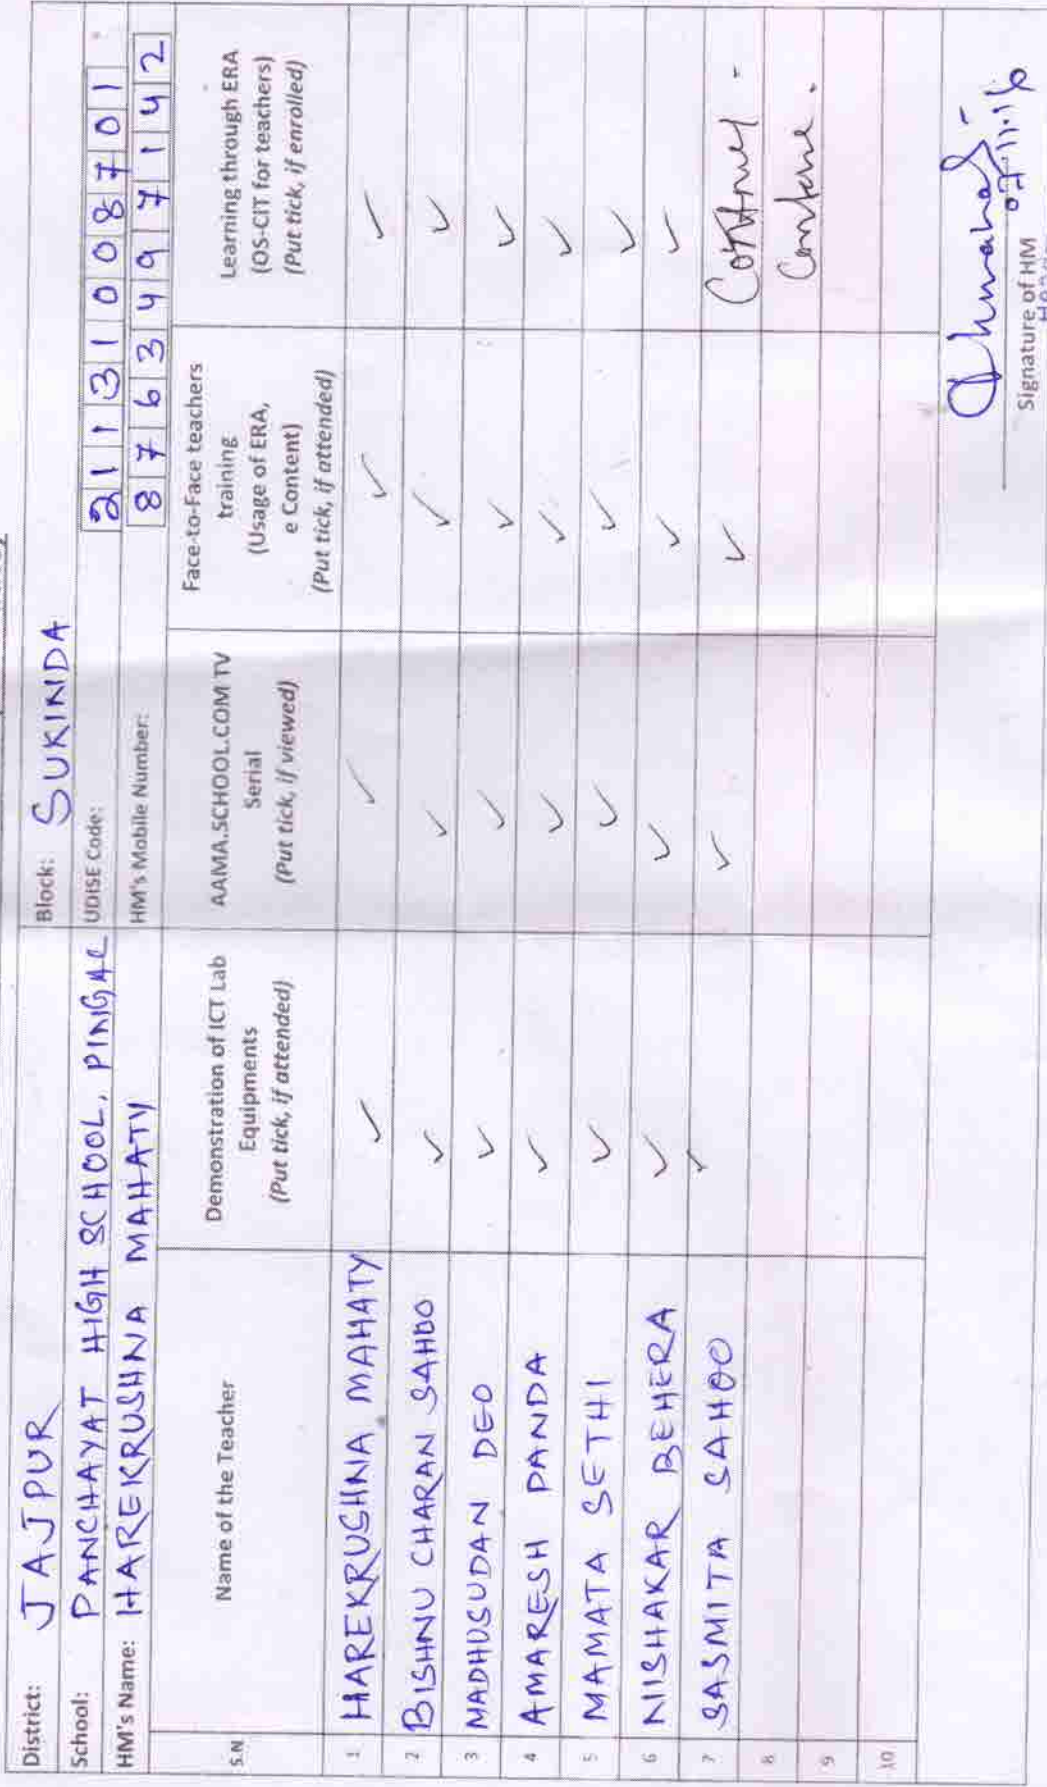 District: JAJPUR Block: SUKINDA
School: PANCHAYAT HIGH SCHOOL, PINGAL UDISE Code: 21131008701
HM's Name: HAREKRUSHNA MAHATY HM's Mobile Number: 8763497142
S.N Name of the Teacher Demonstration of ICT Lab Equipments (Put tick, if attended) AAMA.SCHOOL.COM TV Serial (Put tick, if viewed) Face-to-Face teachers training (Usage of ERA, e Content) (Put tick, if attended) Learning through ERA (OS-CIT for teachers) (Put tick, if enrolled)
1 HAREKRUSHNA MAHATY ✓ ✓ ✓ ✓
2 BISHNU CHARAN SAHOO ✓ ✓ ✓ ✓
3 MADHUSUDAN DEO ✓ ✓ ✓ ✓
4 AMARESH PANDA ✓ ✓ ✓ ✓
5 MAMATA SETHI ✓ ✓ ✓ ✓
6 NISHAKAR BEHERA ✓ ✓ ✓ ✓
7 SASMITA SAHOO ✓ ✓ ✓
8
9
10
07.11.16
Signature of HM